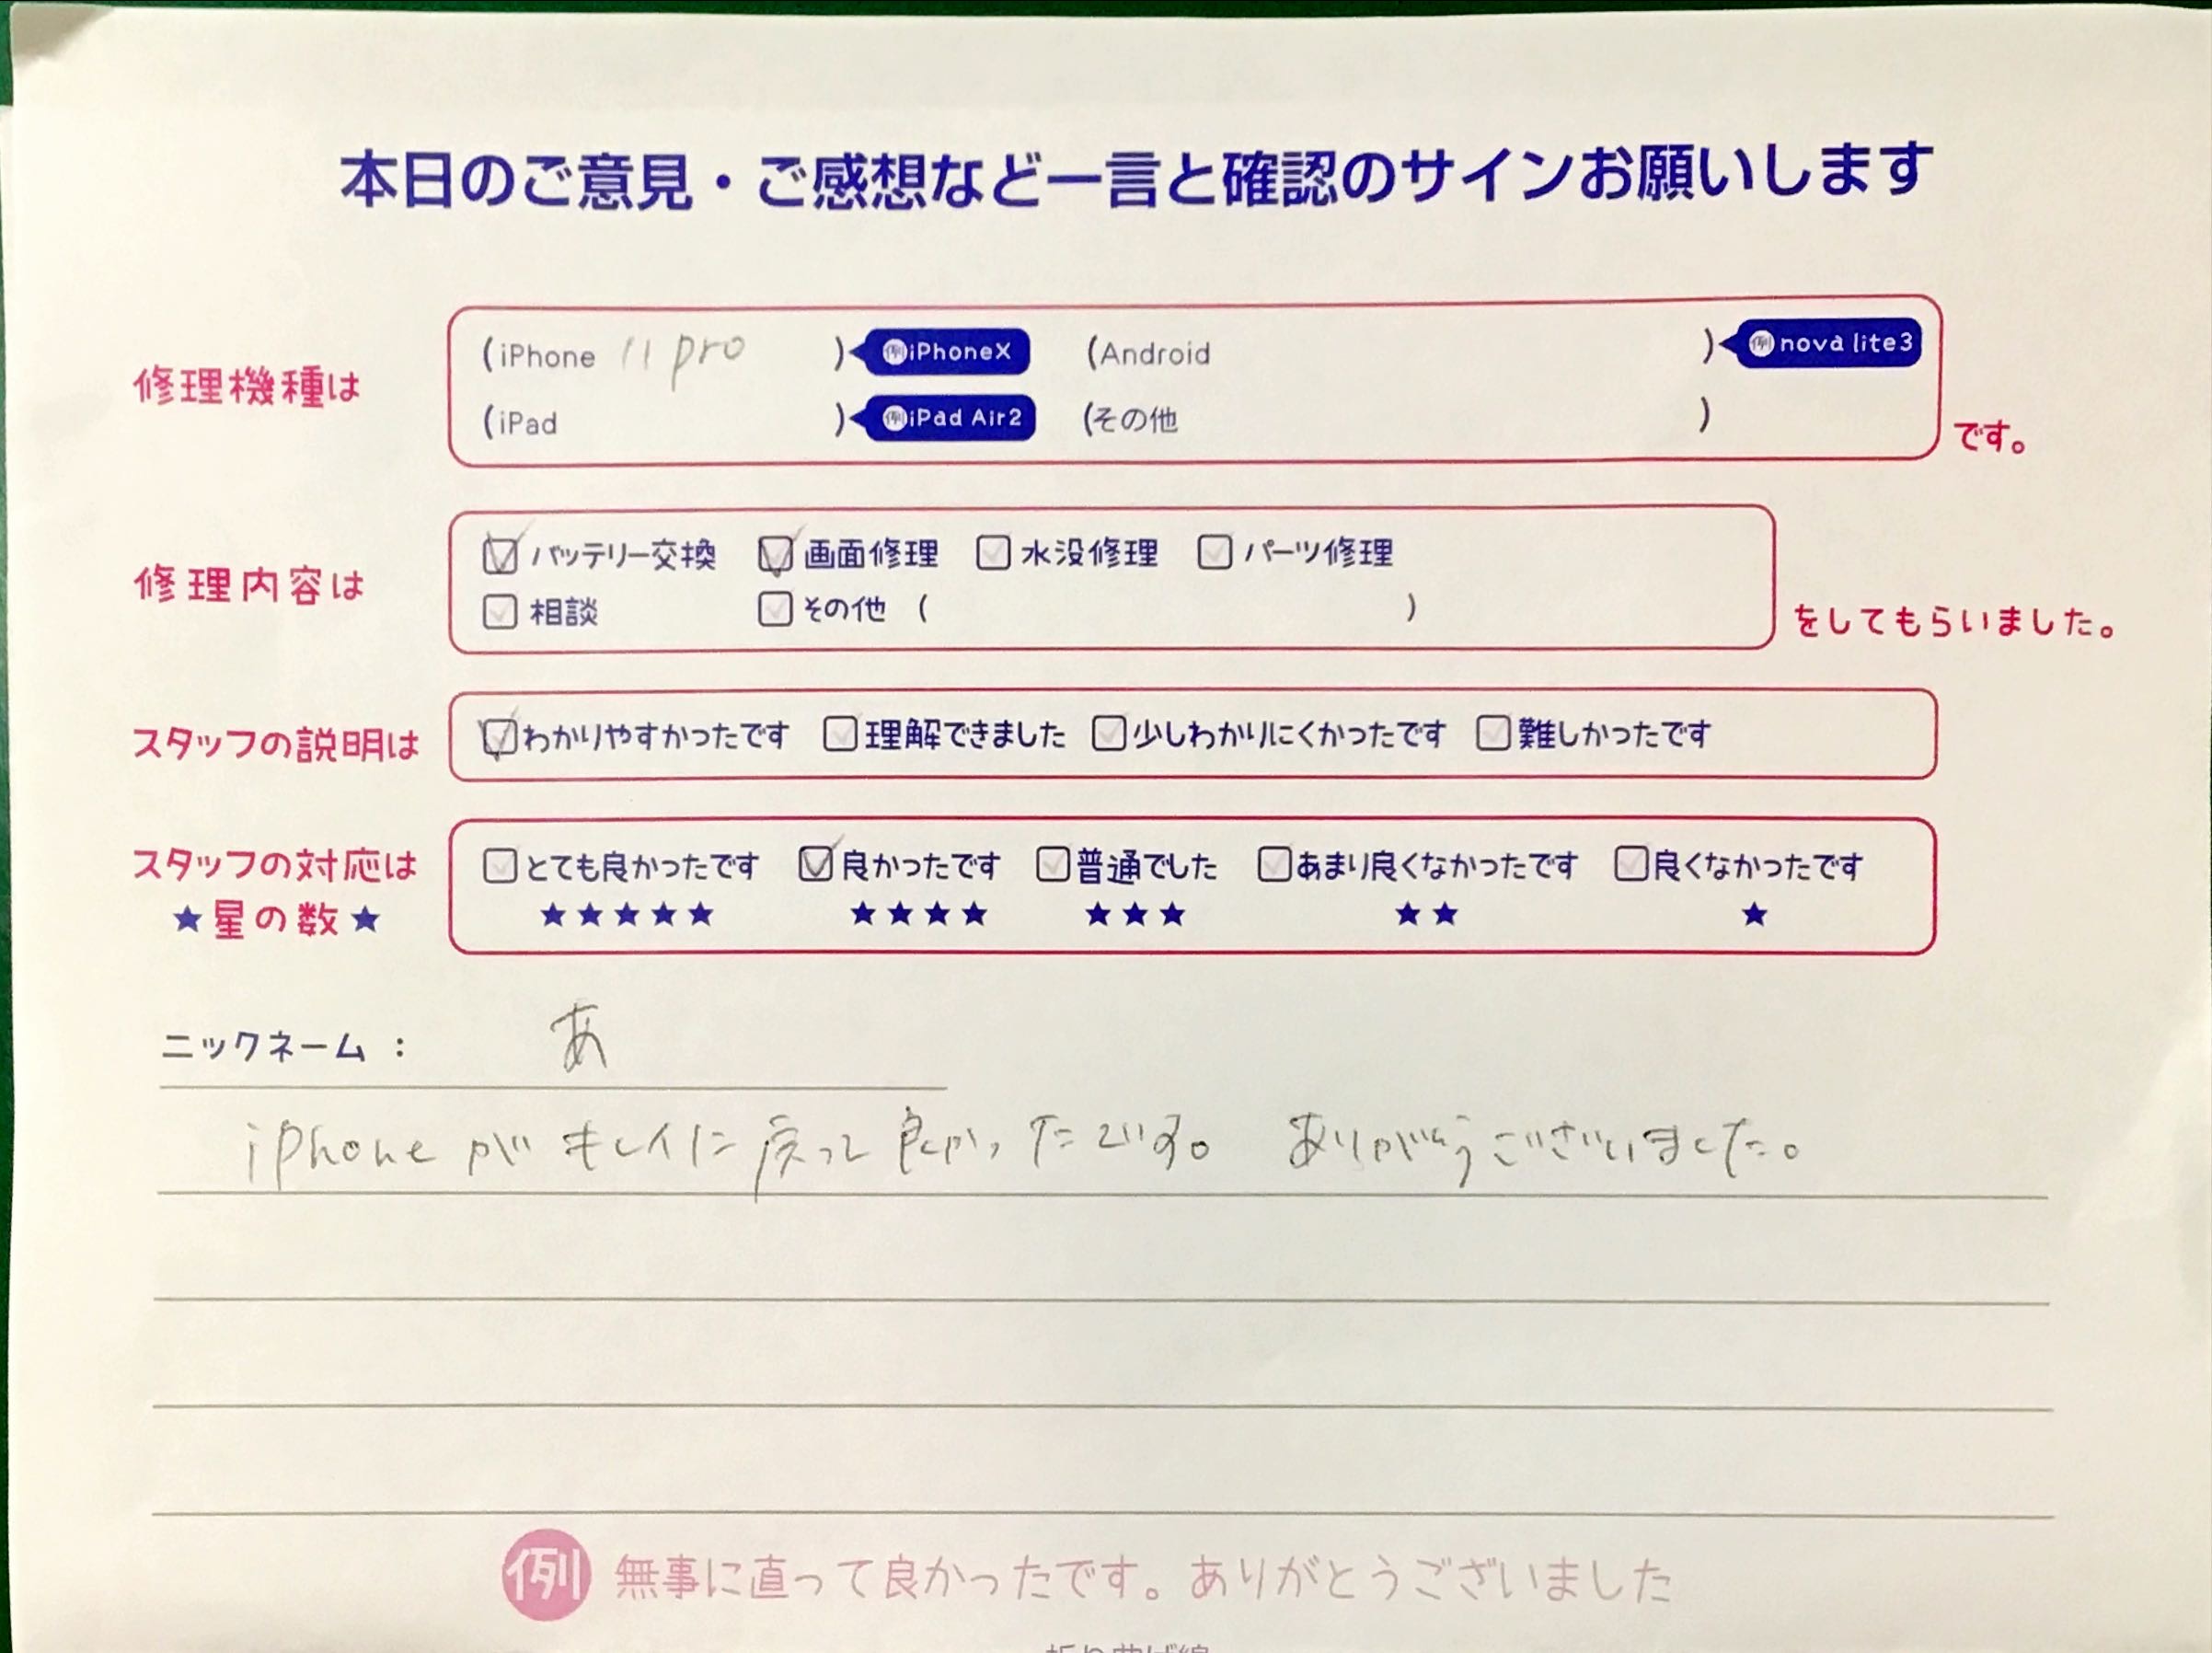 本日のご意見・ご感想など一言と確認のサインお願いします
修理機種は (iPhone 11 pro ) 例iPhoneX (Android ) 例nova lite3
(iPad ) 例iPad Air2 (その他 ) です。
修理内容は バッテリー交換 画面修理 水没修理 パーツ修理
相談 その他 ( ) をしてもらいました。
スタッフの説明は わかりやすかったです 理解できました 少しわかりにくかったです 難しかったです
スタッフの対応は とても良かったです 良かったです 普通でした あまり良くなかったです 良くなかったです
★星の数★ ★★★★★ ★★★★ ★★★ ★★ ★
ニックネーム : あ
iPhoneがキレイに戻って良かったです。 ありがとうございました。
例 無事に直って良かったです。ありがとうございました